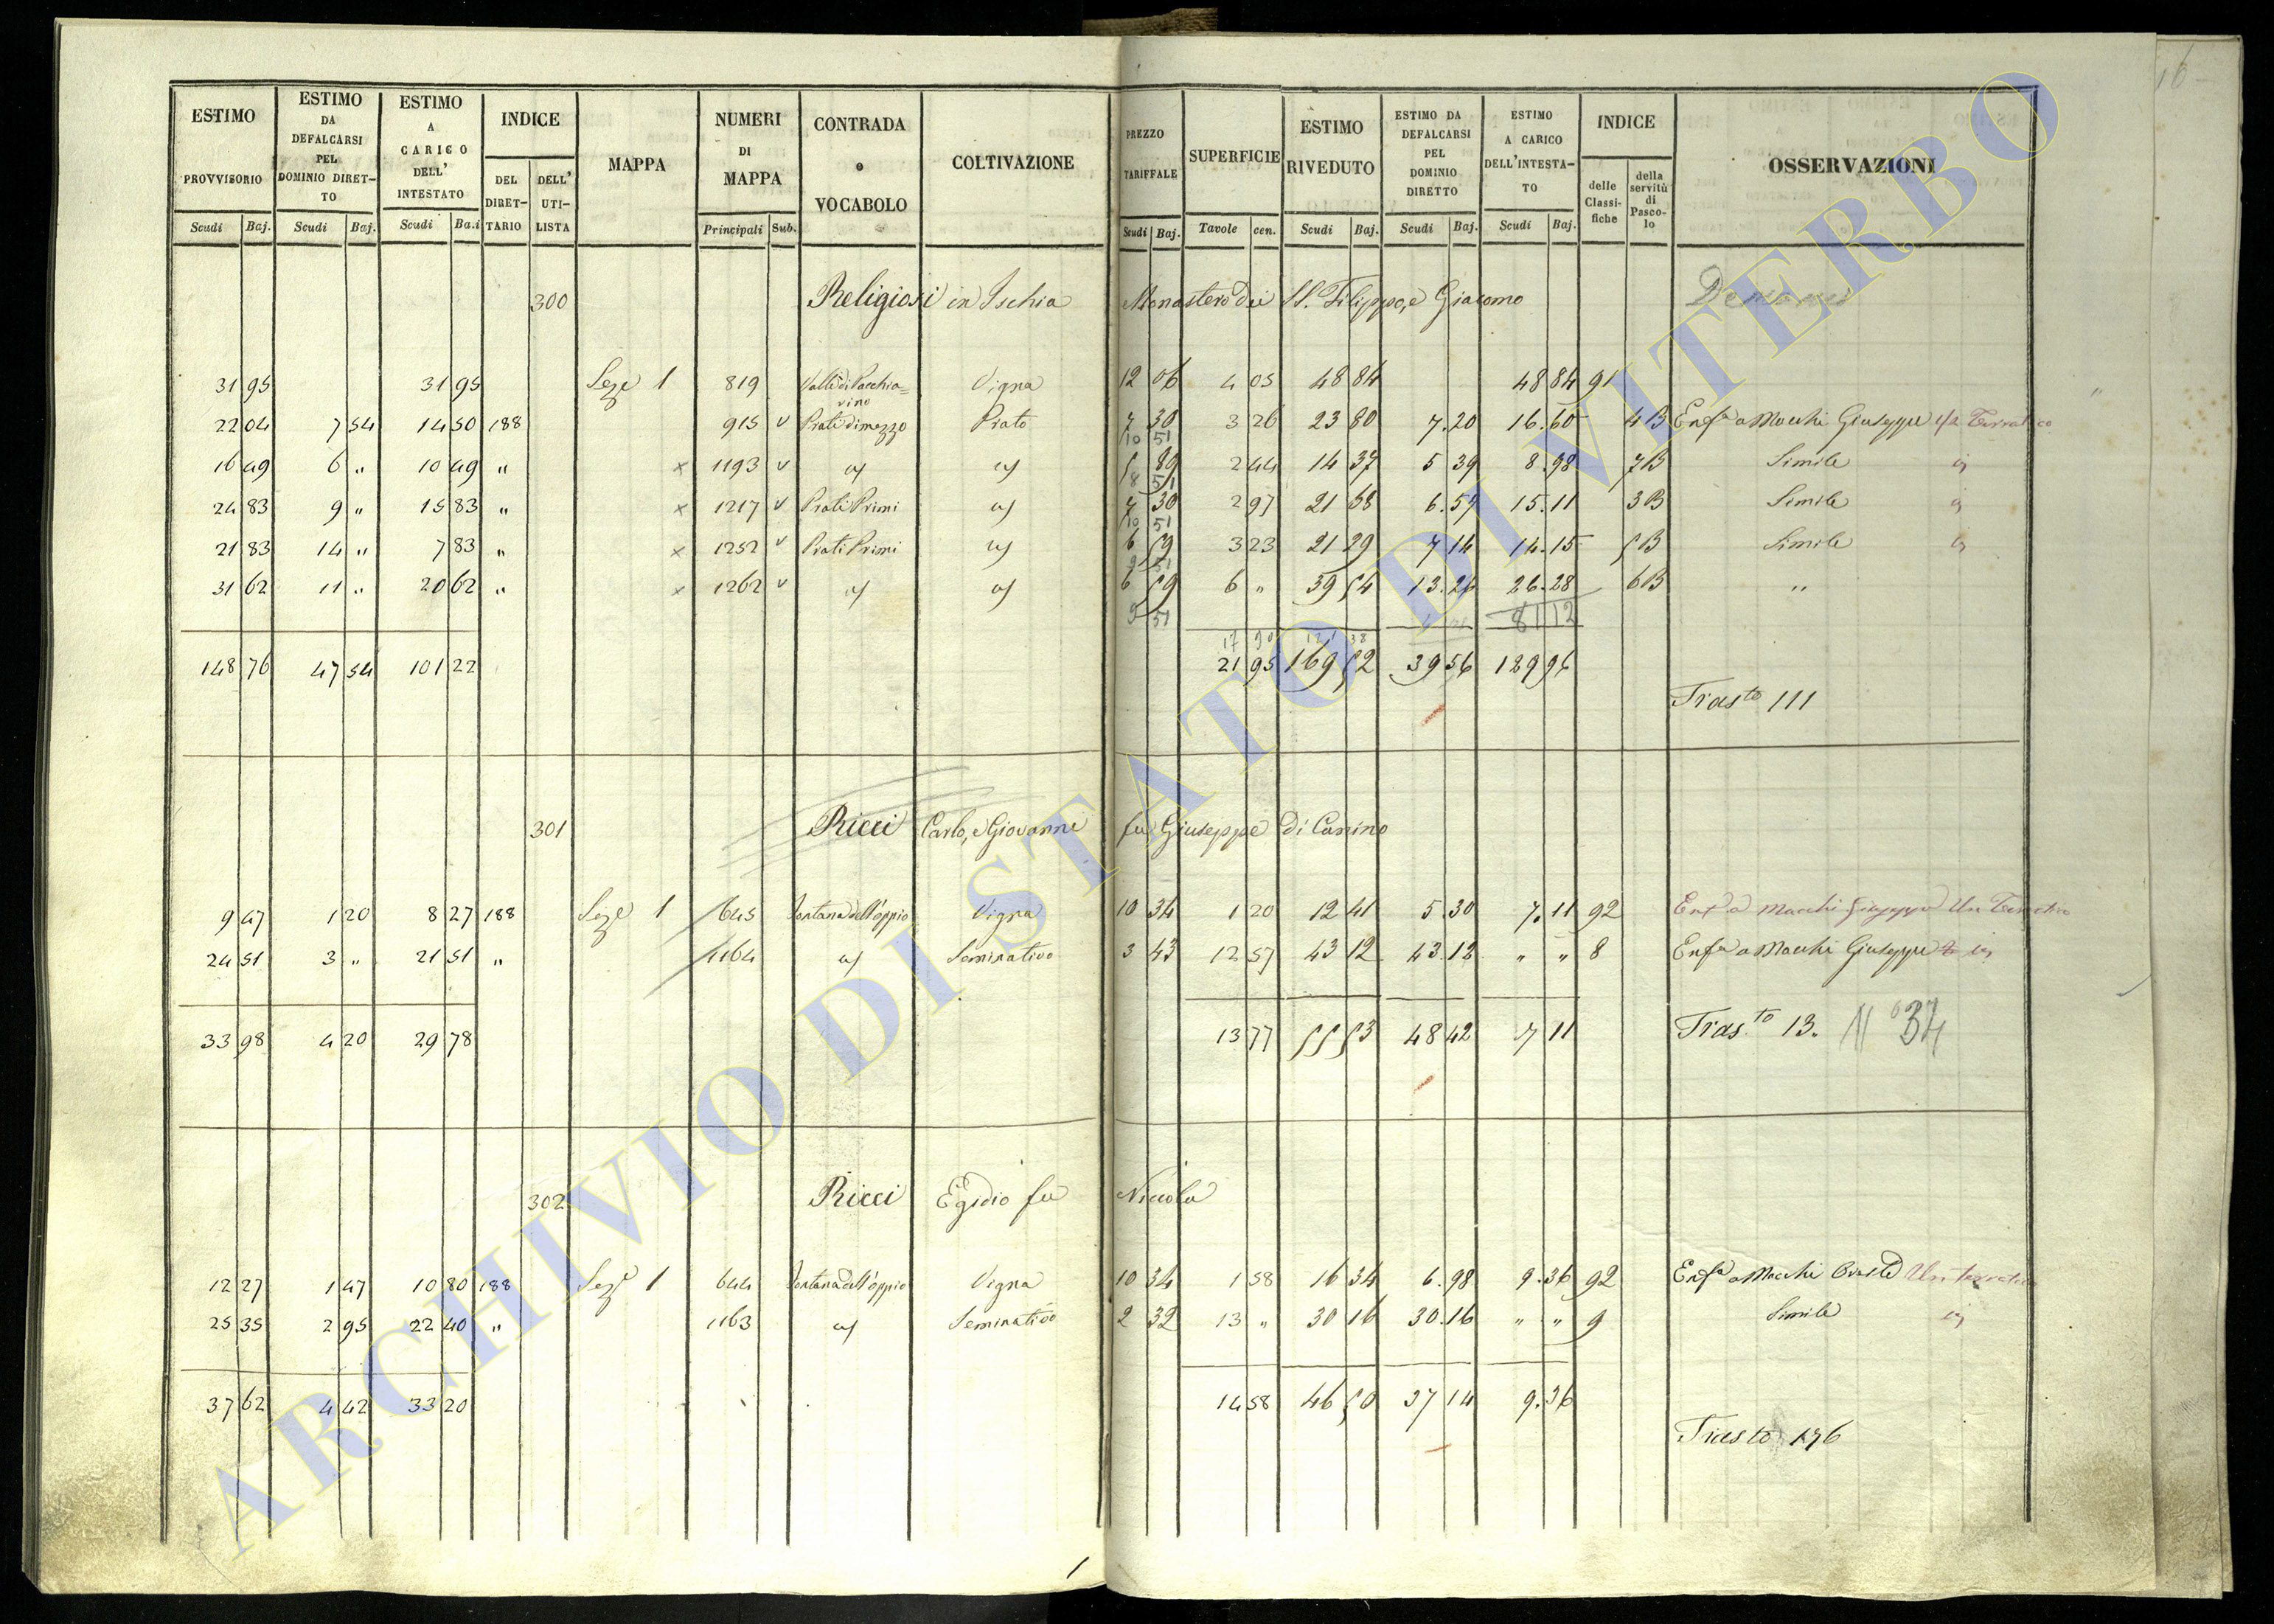 ESTIMO PROVVISORIO Scudi Baj. | ESTIMO DA DEFALCARSI PEL DOMINIO DIRET-TO Scudi Baj. | ESTIMO A CARICO DELL' INTESTATO Scudi Ba.i | INDICE DEL DIRET-TARIO DELL' UTI-LISTA | MAPPA | NUMERI DI MAPPA Principali Sub. | CONTRADA o VOCABOLO | COLTIVAZIONE | PREZZO TARIFFALE Scudi Baj. | SUPERFICIE Tavole cen. | ESTIMO RIVEDUTO Scudi Baj. | ESTIMO DA DEFALCARSI PEL DOMINIO DIRETTO Scudi Baj. | ESTIMO A CARICO DELL'INTESTA-TO Scudi Baj. | INDICE delle Classi-fiche della servitù di Pasco-lo | OSSERVAZIONI
300 Religiosi in Ischia Monastero dei SS. Filippo, e Giacomo
31 95 31 95 Seze 1 819 Valle di Pacchia=vino Vigna 12 06 4 05 48 84 48 84 91
22 04 7 54 14 50 188 915 v Prati di mezzo Prato 7 30 3 26 23 80 7.20 16.60 4B Enfa a Macchi Giuseppe
10 51
16 49 6 " 10 49 " x 1193 v 89 2 44 14 37 5 39 8.98 7B Simile
8 51
24 83 9 " 15 83 " x 1217 v Prati Primi 7 30 2 97 21 68 6.57 15.11 3B Simile
10 51
21 83 14 " 7 83 " x 1252 v Prati Primi 6 59 3 23 21 29 7 14 14.15 5B Simile
9 51
31 62 11 " 20 62 " x 1262 v 6 59 6 " 39 54 13.26 26.28 6B "
9 51 81 12
17 90 121 38
148 76 47 54 101 22 21 95 169 52 39 56 129 96
Trasto 111
301 Ricci Carlo, e Giovanni fu Giuseppe di Canino
9 47 1 20 8 27 188 Seze 1 645 Fontana dell'oppio Vigna 10 34 1 20 12 41 5.30 7.11 92 Enfa a Macchi Giuseppe
24 51 3 " 21 51 " 1164 Seminativo 3 43 12 57 43 12 43.12 " " 8 Enfa a Macchi Giuseppe
33 98 4 20 29 78 13 77 55 53 48 42 7 11 Tras.to 13. N° 34
302 Ricci Egidio fu Niccola
12 27 1 47 10 80 188 Seze 1 644 Fontana dell'oppio Vigna 10 34 1 58 16 34 6.98 9.36 92 Enfa a Macchi
25 35 2 95 22 40 " 1163 Seminativo 2 32 13 " 30 16 30.16 " " 9 Simile
37 62 4 42 33 20 14 58 46 50 37 14 9.36
Trasto 176
ARCHIVIO DI STATO DI VITERBO